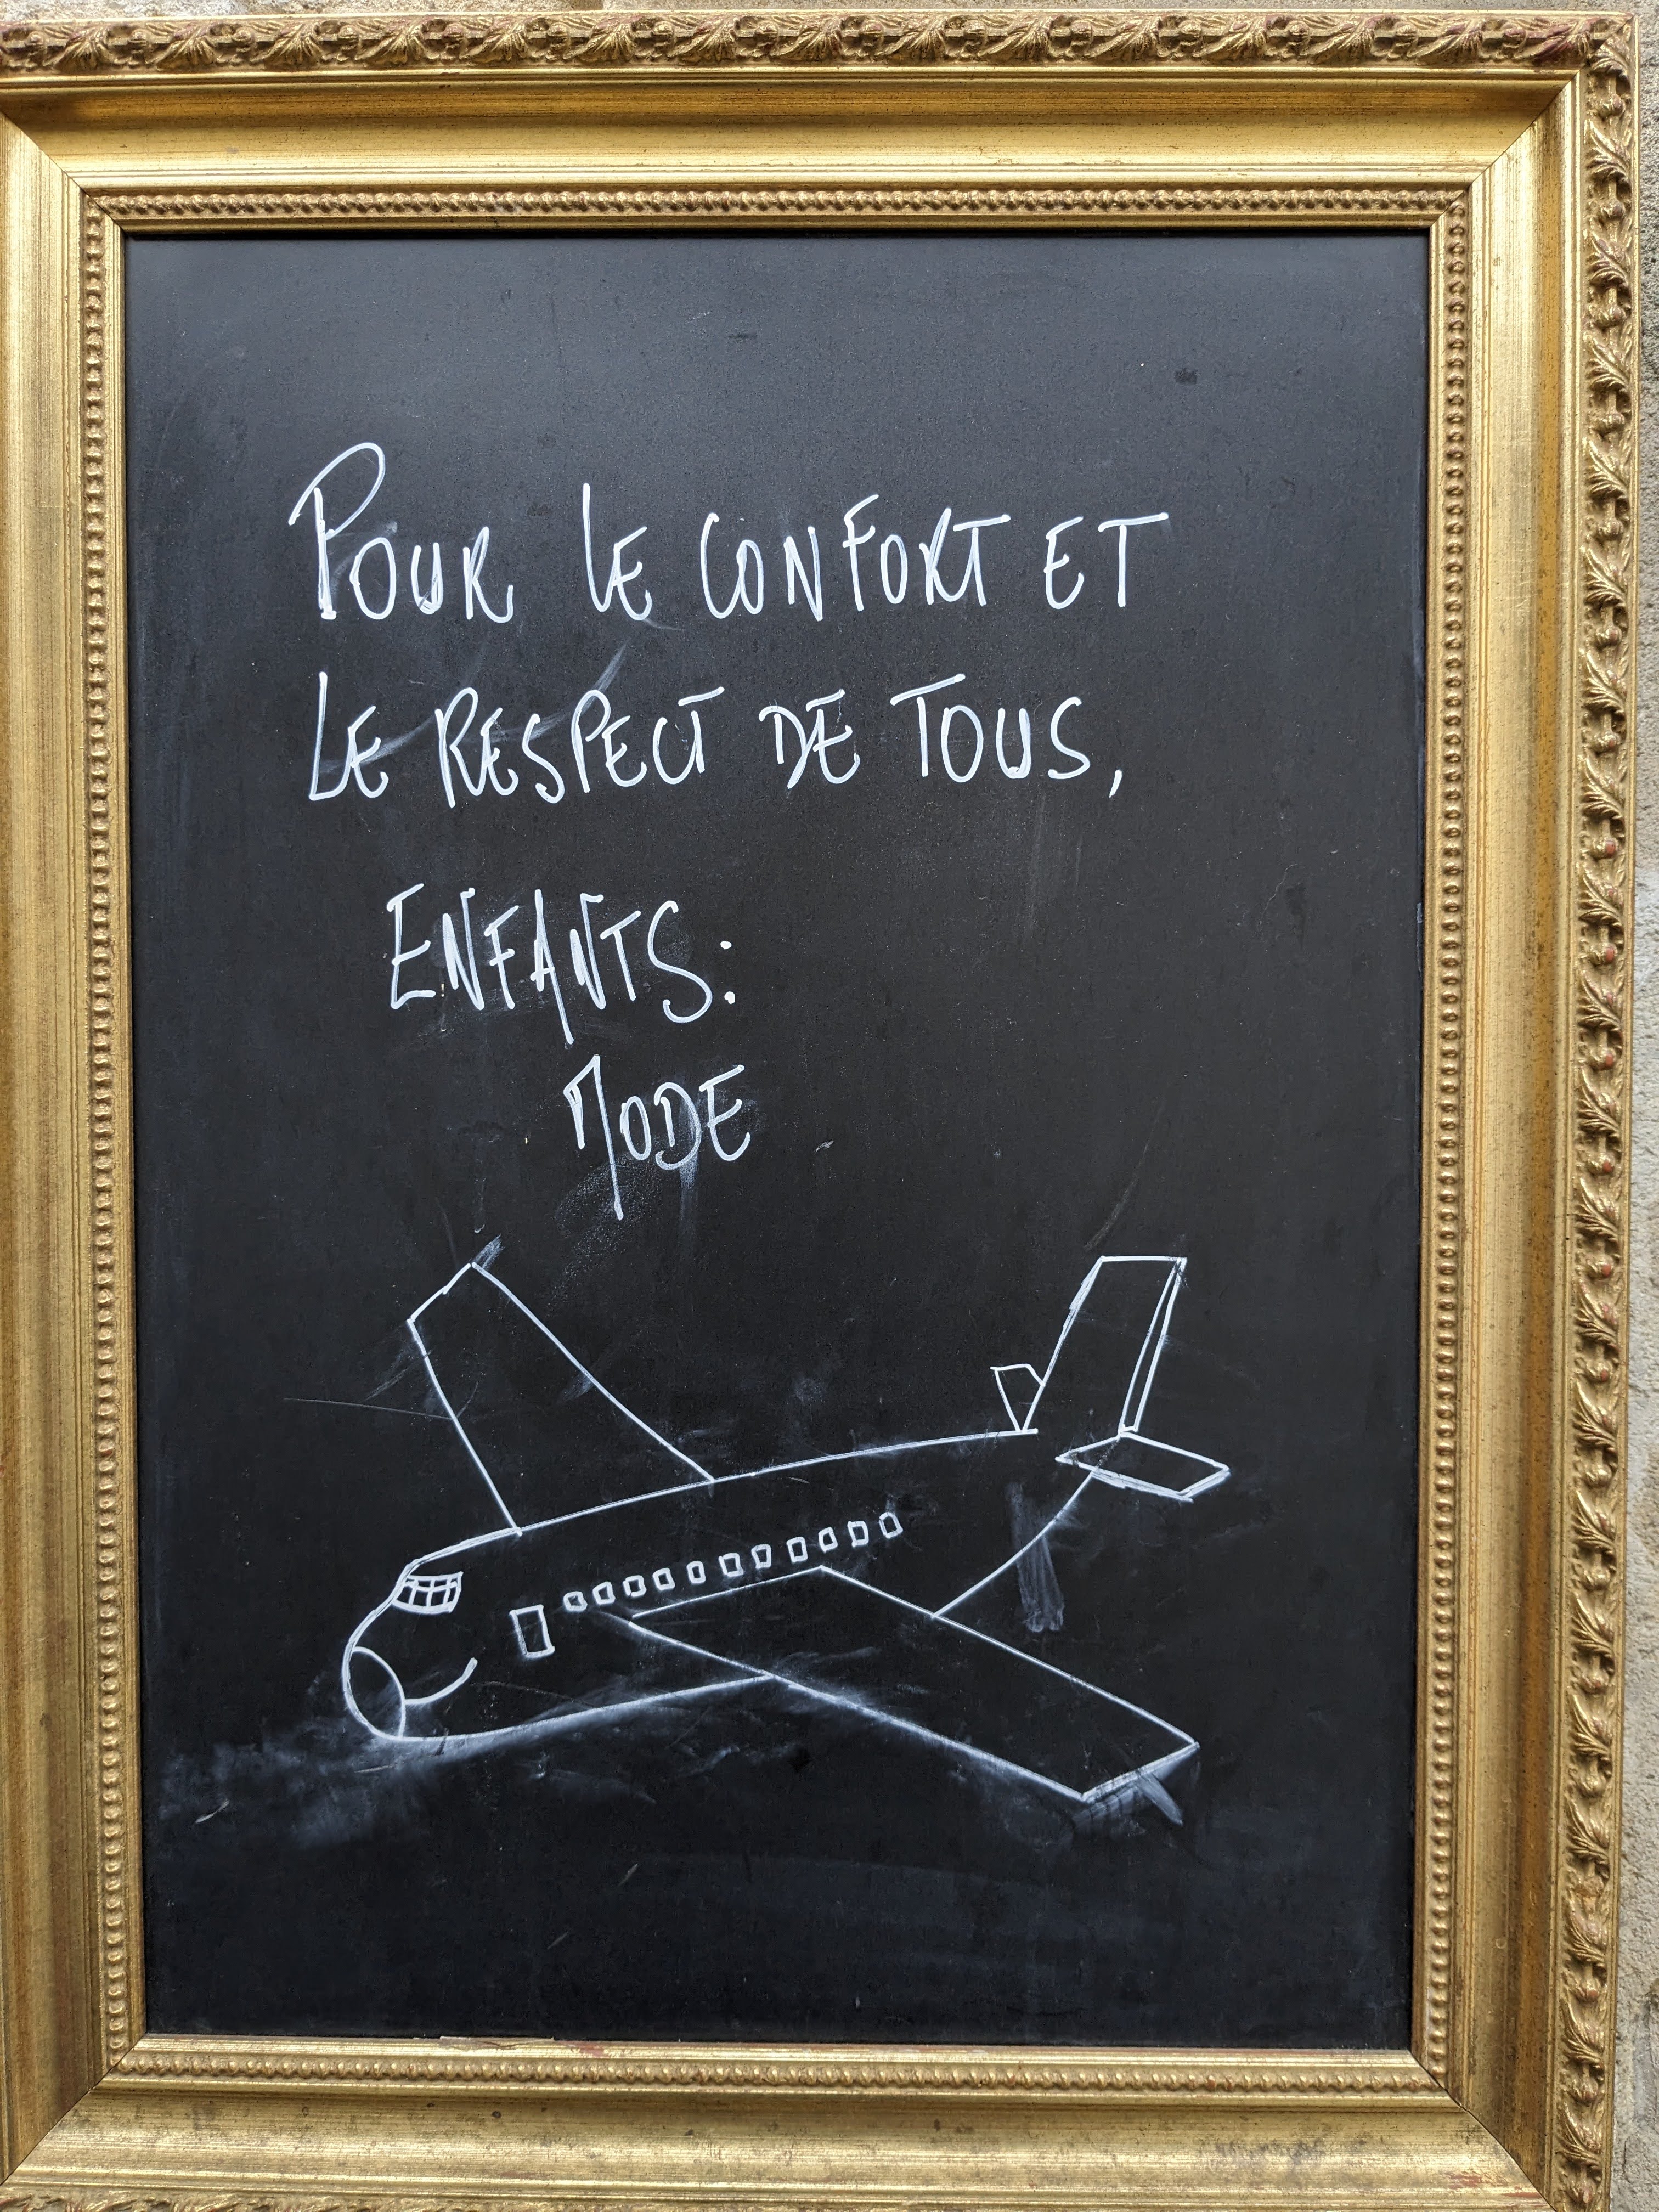 POUR LE CONFORT ET
LE RESPECT DE TOUS,
ENFANTS:
MODE